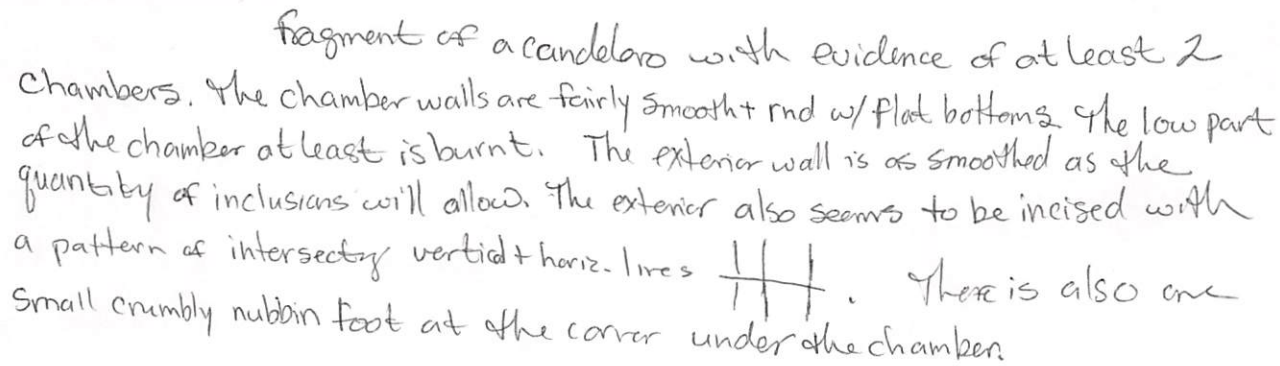 fragment of a candelaro with evidence of at least 2
chambers. The chamber walls are fairly smooth + rnd w/ flat bottoms. The low part
of the chamber at least is burnt. The exterior wall is as smoothed as the
quantity of inclusions will allow. The exterior also seems to be incised with
a pattern of intersectg vertical + horiz. lines . There is also one
small crumbly nubbin foot at the corner under the chamber.